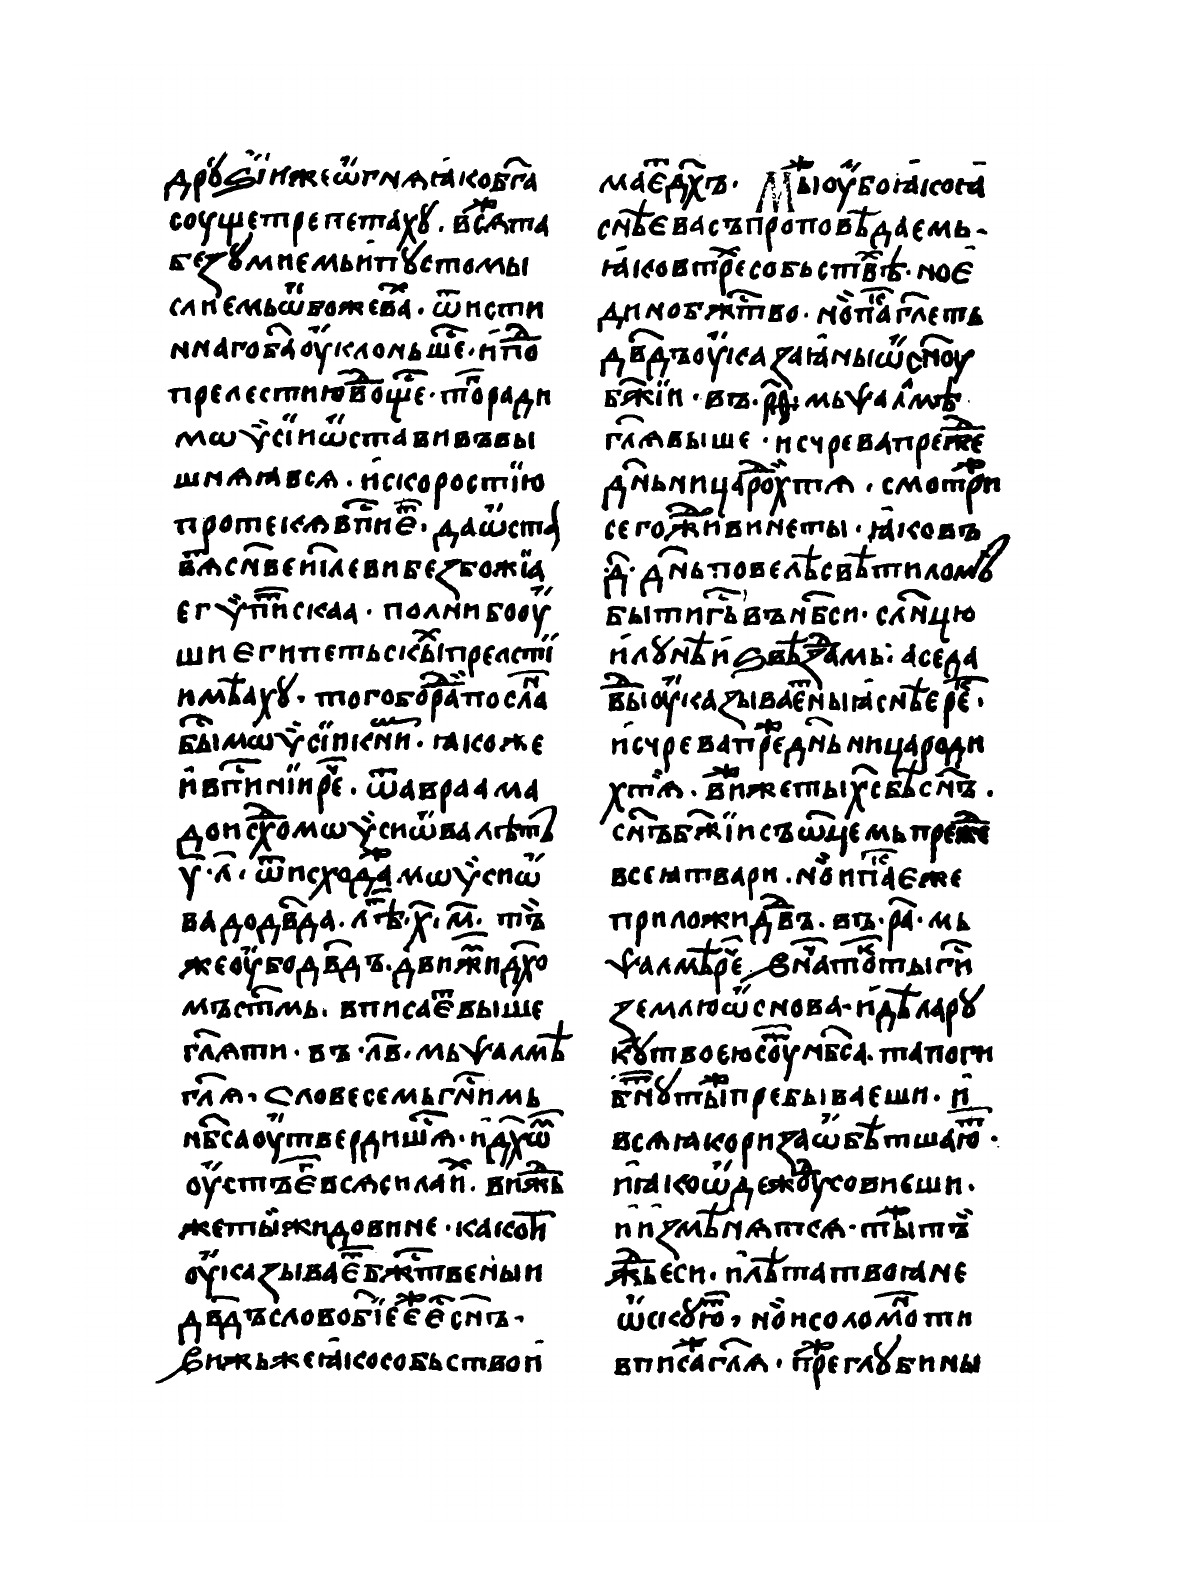 дроуѕїи же ѿ гнѧ ꙗко б҃га
соуще трепетахꙋ . всѧ та
беꙁꙋмиемь и пꙋстомы
слиемь ѿвоже ва . ѿ исти
ннаго б҃а оуклоньше . и по
прелестию воще . то ради
моѵсїи ѡставив вы
шнѧꙗ всѧ . и скоростїю
протекъ впие . да ѡста
вѧ сн҃ве иї҃леви беꙁбожїа
егѵпт҃искаа . полни бо оу
ши египетьскы прелстї
имѣахꙋ . того бо ра посла
б҃ы моѵсїи кн҃ги . ꙗкоже
и в пи҃нїи р҃е . ѿ авраама
до исхо моѵси ѡва лѣть
у҃ . л҃ . ѿ исхода моѵсиѡ
ва до дв҃да . лѣ . х҃ . м҃ . тъ
же оубо дв҃дъ . движи дх҃о
мъ ст҃мь . вписае выше
гл҃ѧти . въ . л҃в . мь ѱалмѣ
гл҃ѧ . словесемь гн҃имь
нб҃са оутвердишѧ . и дх҃ѿ
оустъ е҃ всѧ сила и . вижь
же ты жидовине . како ти
оукаꙁывае бж҃твеныи
дв҃дъ слово бї҃е е҃ е҃ сн҃ъ .
вижь же ꙗко собьство и
мае дх҃ъ . мы оубо ꙗко на
снѣ е ва съ проповѣдаемь
ꙗко в тре собьствѣ . но е
дино бж҃тво . но па гл҃еть
дв҃дъ оукаꙁаꙗ ны ѡ сн҃оу
бж҃їи . въ . р҃а . мь ѱалмѣ
гл҃ѧ выше . ис чрева преже
дн҃ьница рох тѧ . смотри
сего жидовине ты . ꙗко въ
д҃ . дн҃ь повелѣ свѣтиломъ
быти гь въ нб҃си . сл҃нцю
и лꙋнѣ и ѕвѣꙁдамь : а се да
вы оукаꙁываены ꙗ снѣ е ре .
ис чрева пре дн҃ьница роди
х тѧ . виже ты х҃с бѣ сн҃ъ .
сн҃ъ бж҃їи съ ѿцемь преже
всеꙗ твари . но и па еже
приложи дв҃ъ . въ . р҃а . мь
ѱалмѣ р҃е . в нато ты ги
ꙁемлю ѡснова . и дѣла рꙋ
кꙋ твоею соу нб҃са . та поги
бнꙋ ты пребываеши . и
всѧ ꙗко риꙁа ѡбѣтшаю .
и ꙗко ѡдежоу совиеши .
и иꙁмѣнѧтсѧ . ты тъ
жьеси . и лѣта твоꙗ не
ѡскꙋю . но и соломо ти
вписа гл҃ѧ . пре глꙋбины